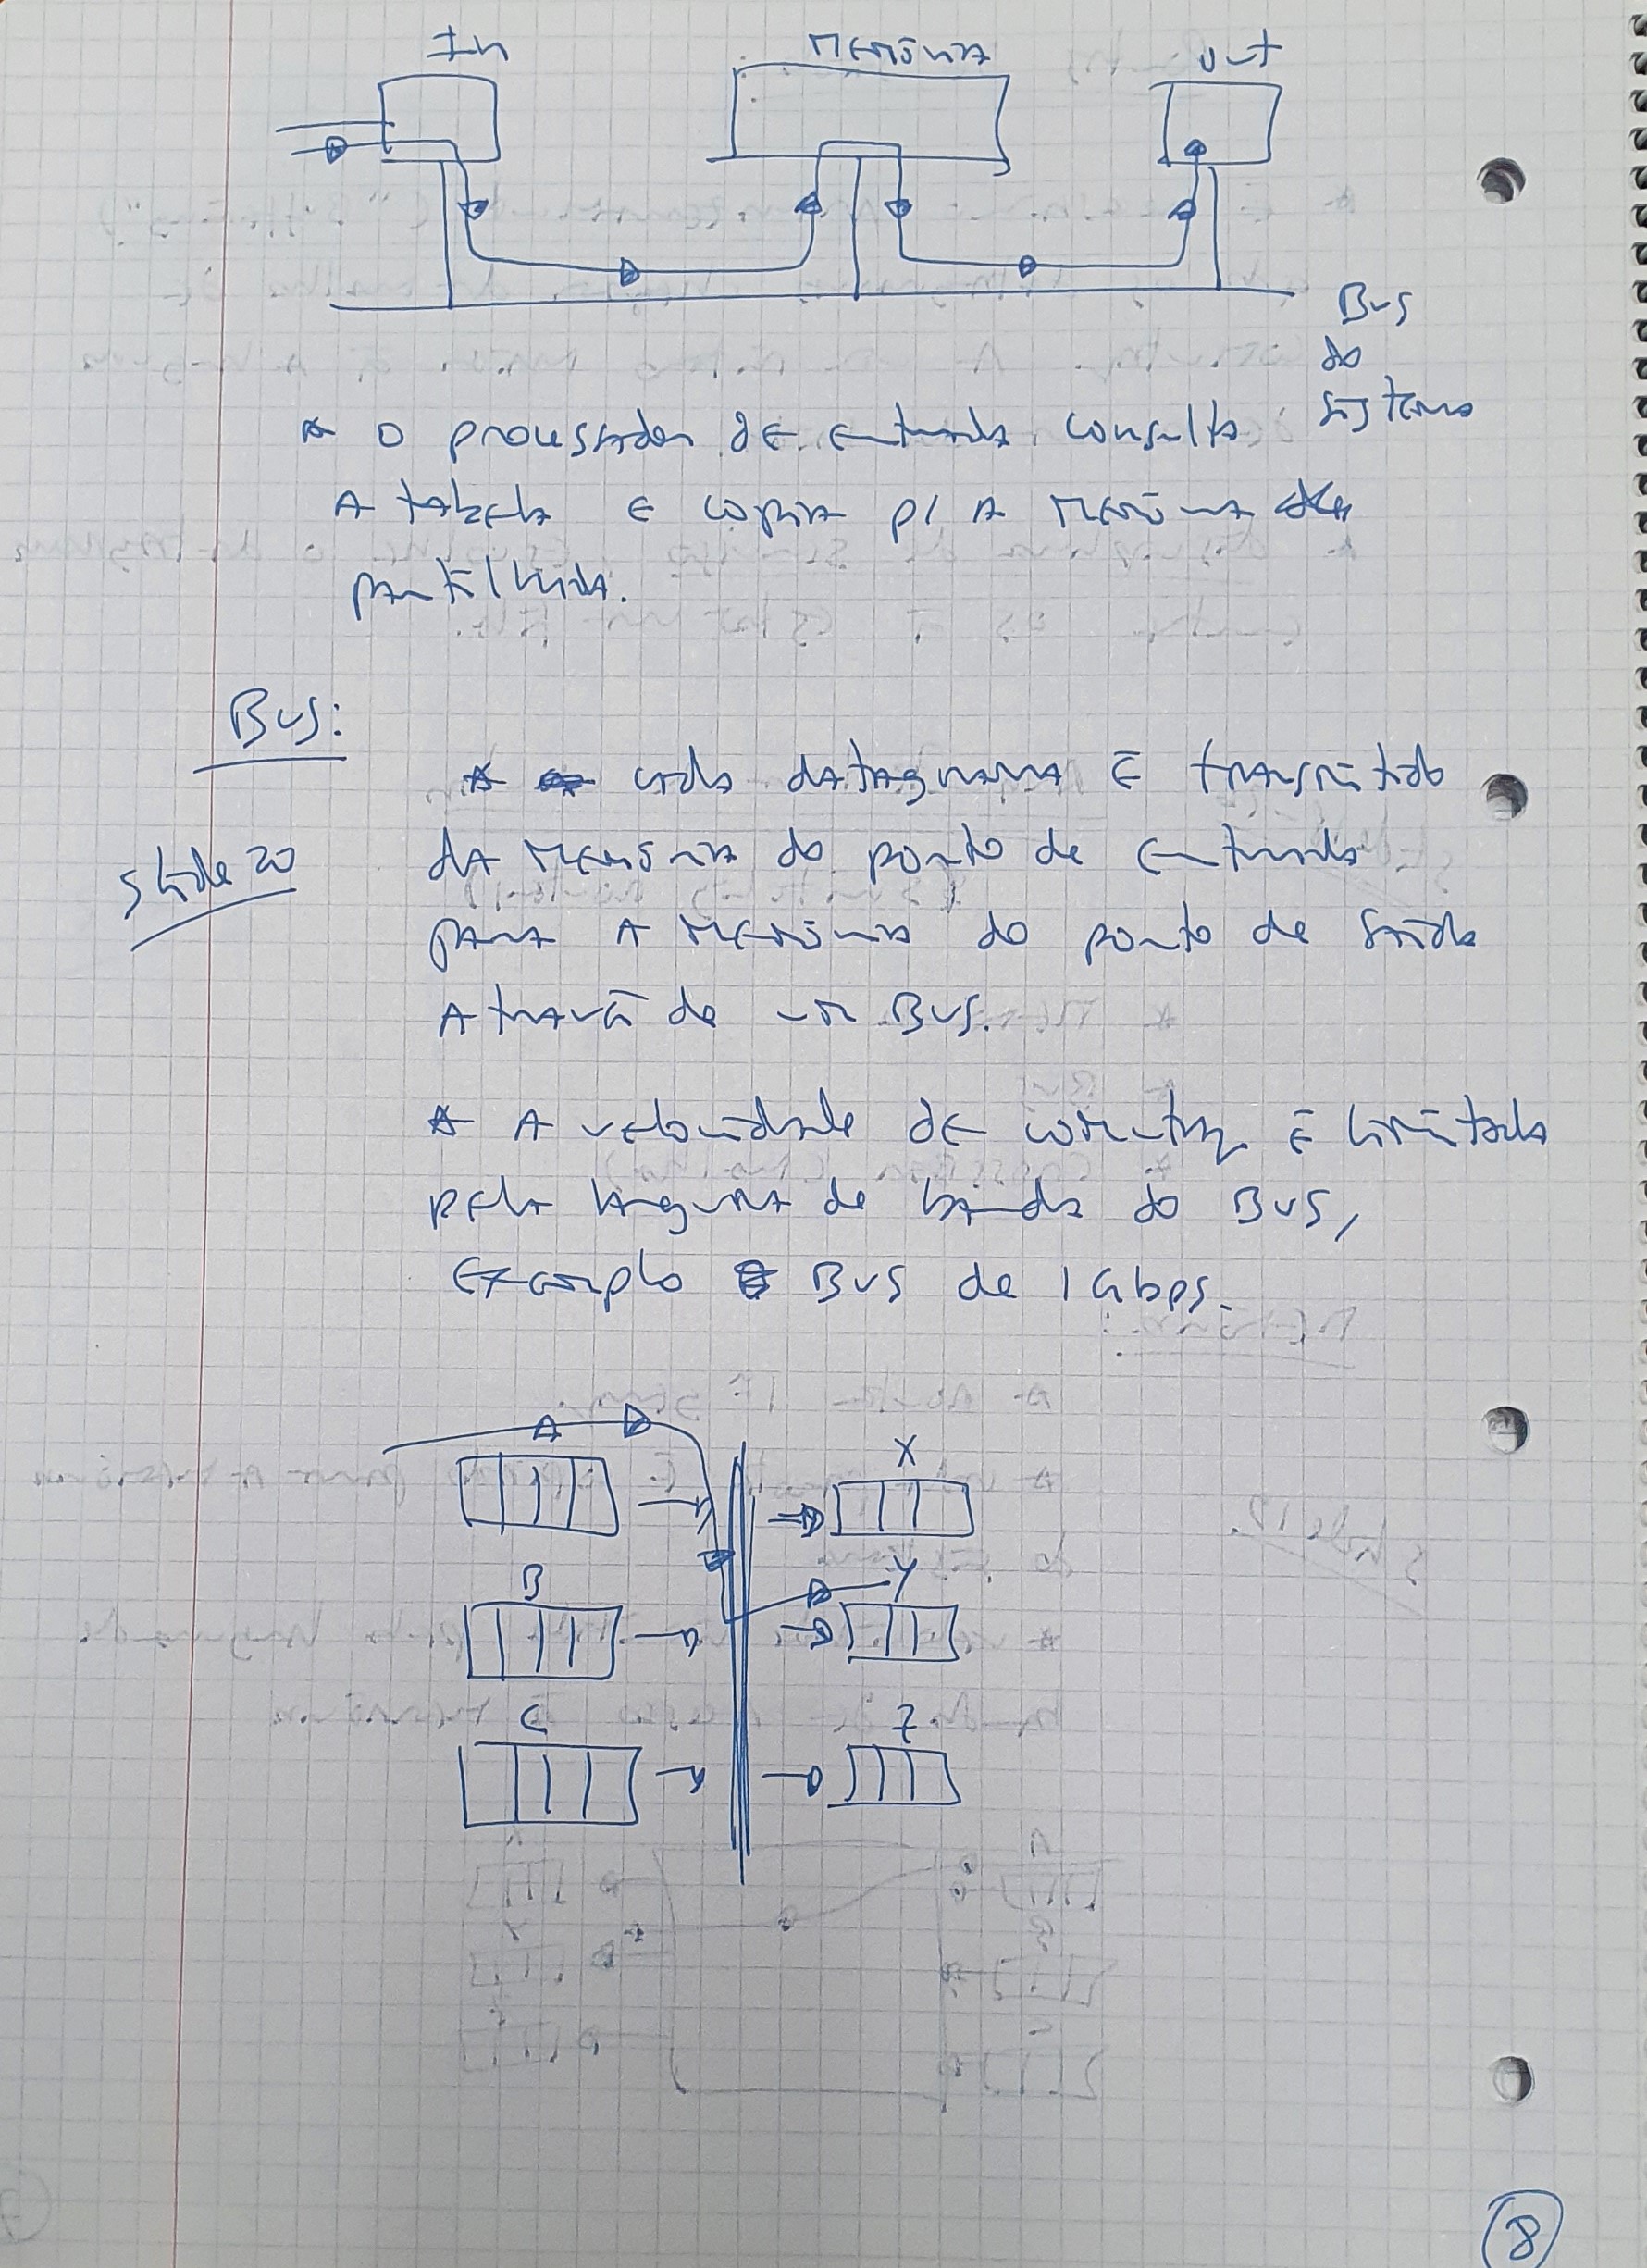 In Memória Out
Bus
do
sistema
* O processador de entrada consulta
A tabela e copia p/ A memória
partilhada.
Bus:
* cada datagrama é transmitido
Slide 20
da memória do ponto de entrada
para A memória do ponto de saída
Através de um Bus.
* A velocidade de comutaç é limitada
pela largura de banda do Bus,
Exemplo Bus de 1 Gbps.
A
X
B
Y
C
Z
8